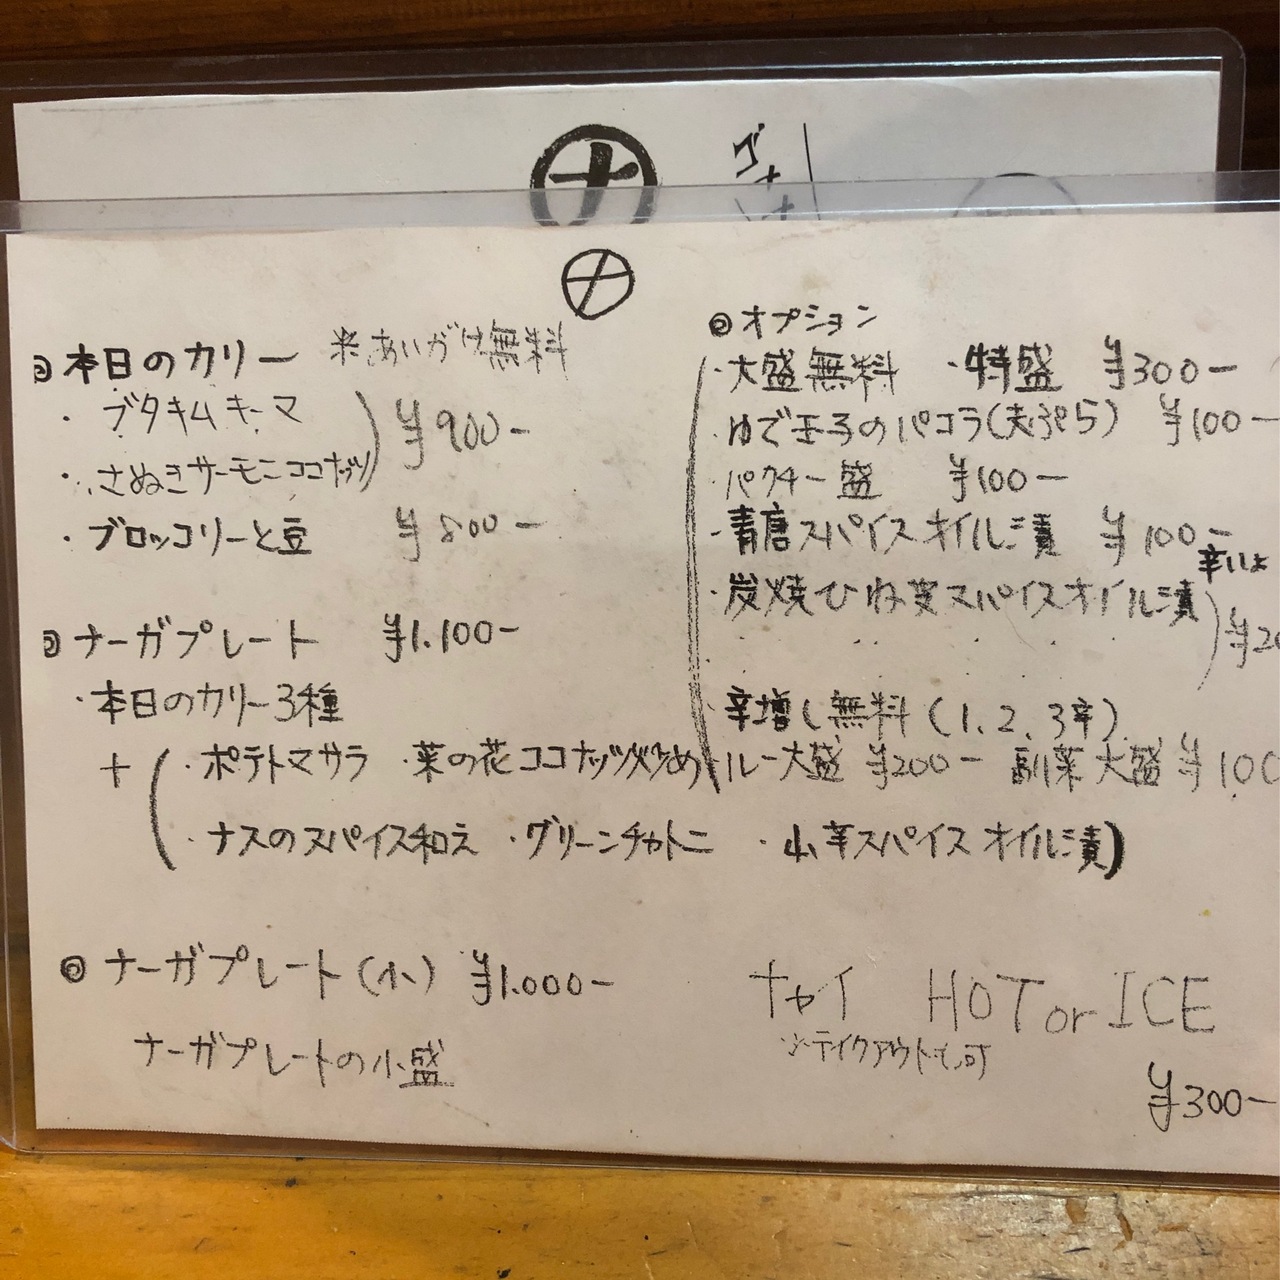 ナ
ナ
本日のカリー ※あいがけ無料
・ブタキムキーマ
・さぬきサーモンココナッツ ¥900-
・ブロッコリーと豆 ¥800-
ナーガプレート ¥1.100-
・本日のカリー3種
+(・ポテトマサラ ・菜の花ココナッツ炒め
・ナスのスパイス和え ・グリーンチャトニ ・山辛スパイスオイル漬)
◎ナーガプレート(小) ¥1.000-
ナーガプレートの小盛
◎オプション
・大盛無料 ・特盛 ¥300-
・ゆで玉子のパコラ(天ぷら) ¥100-
・パクチー盛 ¥100-
・青唐スパイスオイル漬 ¥100-
辛いよ
・炭焼ひね芽スパイスオイル漬
・辛増し無料(1.2.3辛)
・ルー大盛 ¥200- 副菜大盛 ¥100
チャイ HOT or ICE
※テイクアウトも可
¥300-